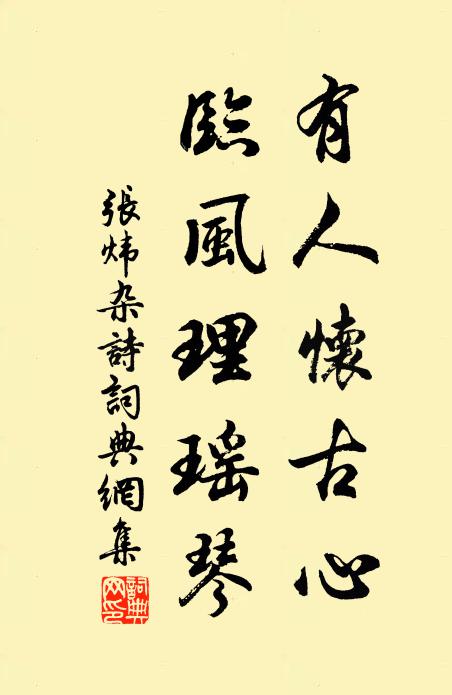 有人懷古心
臨風理瑶琴
張煒杂詩詞典網集
詞典網印